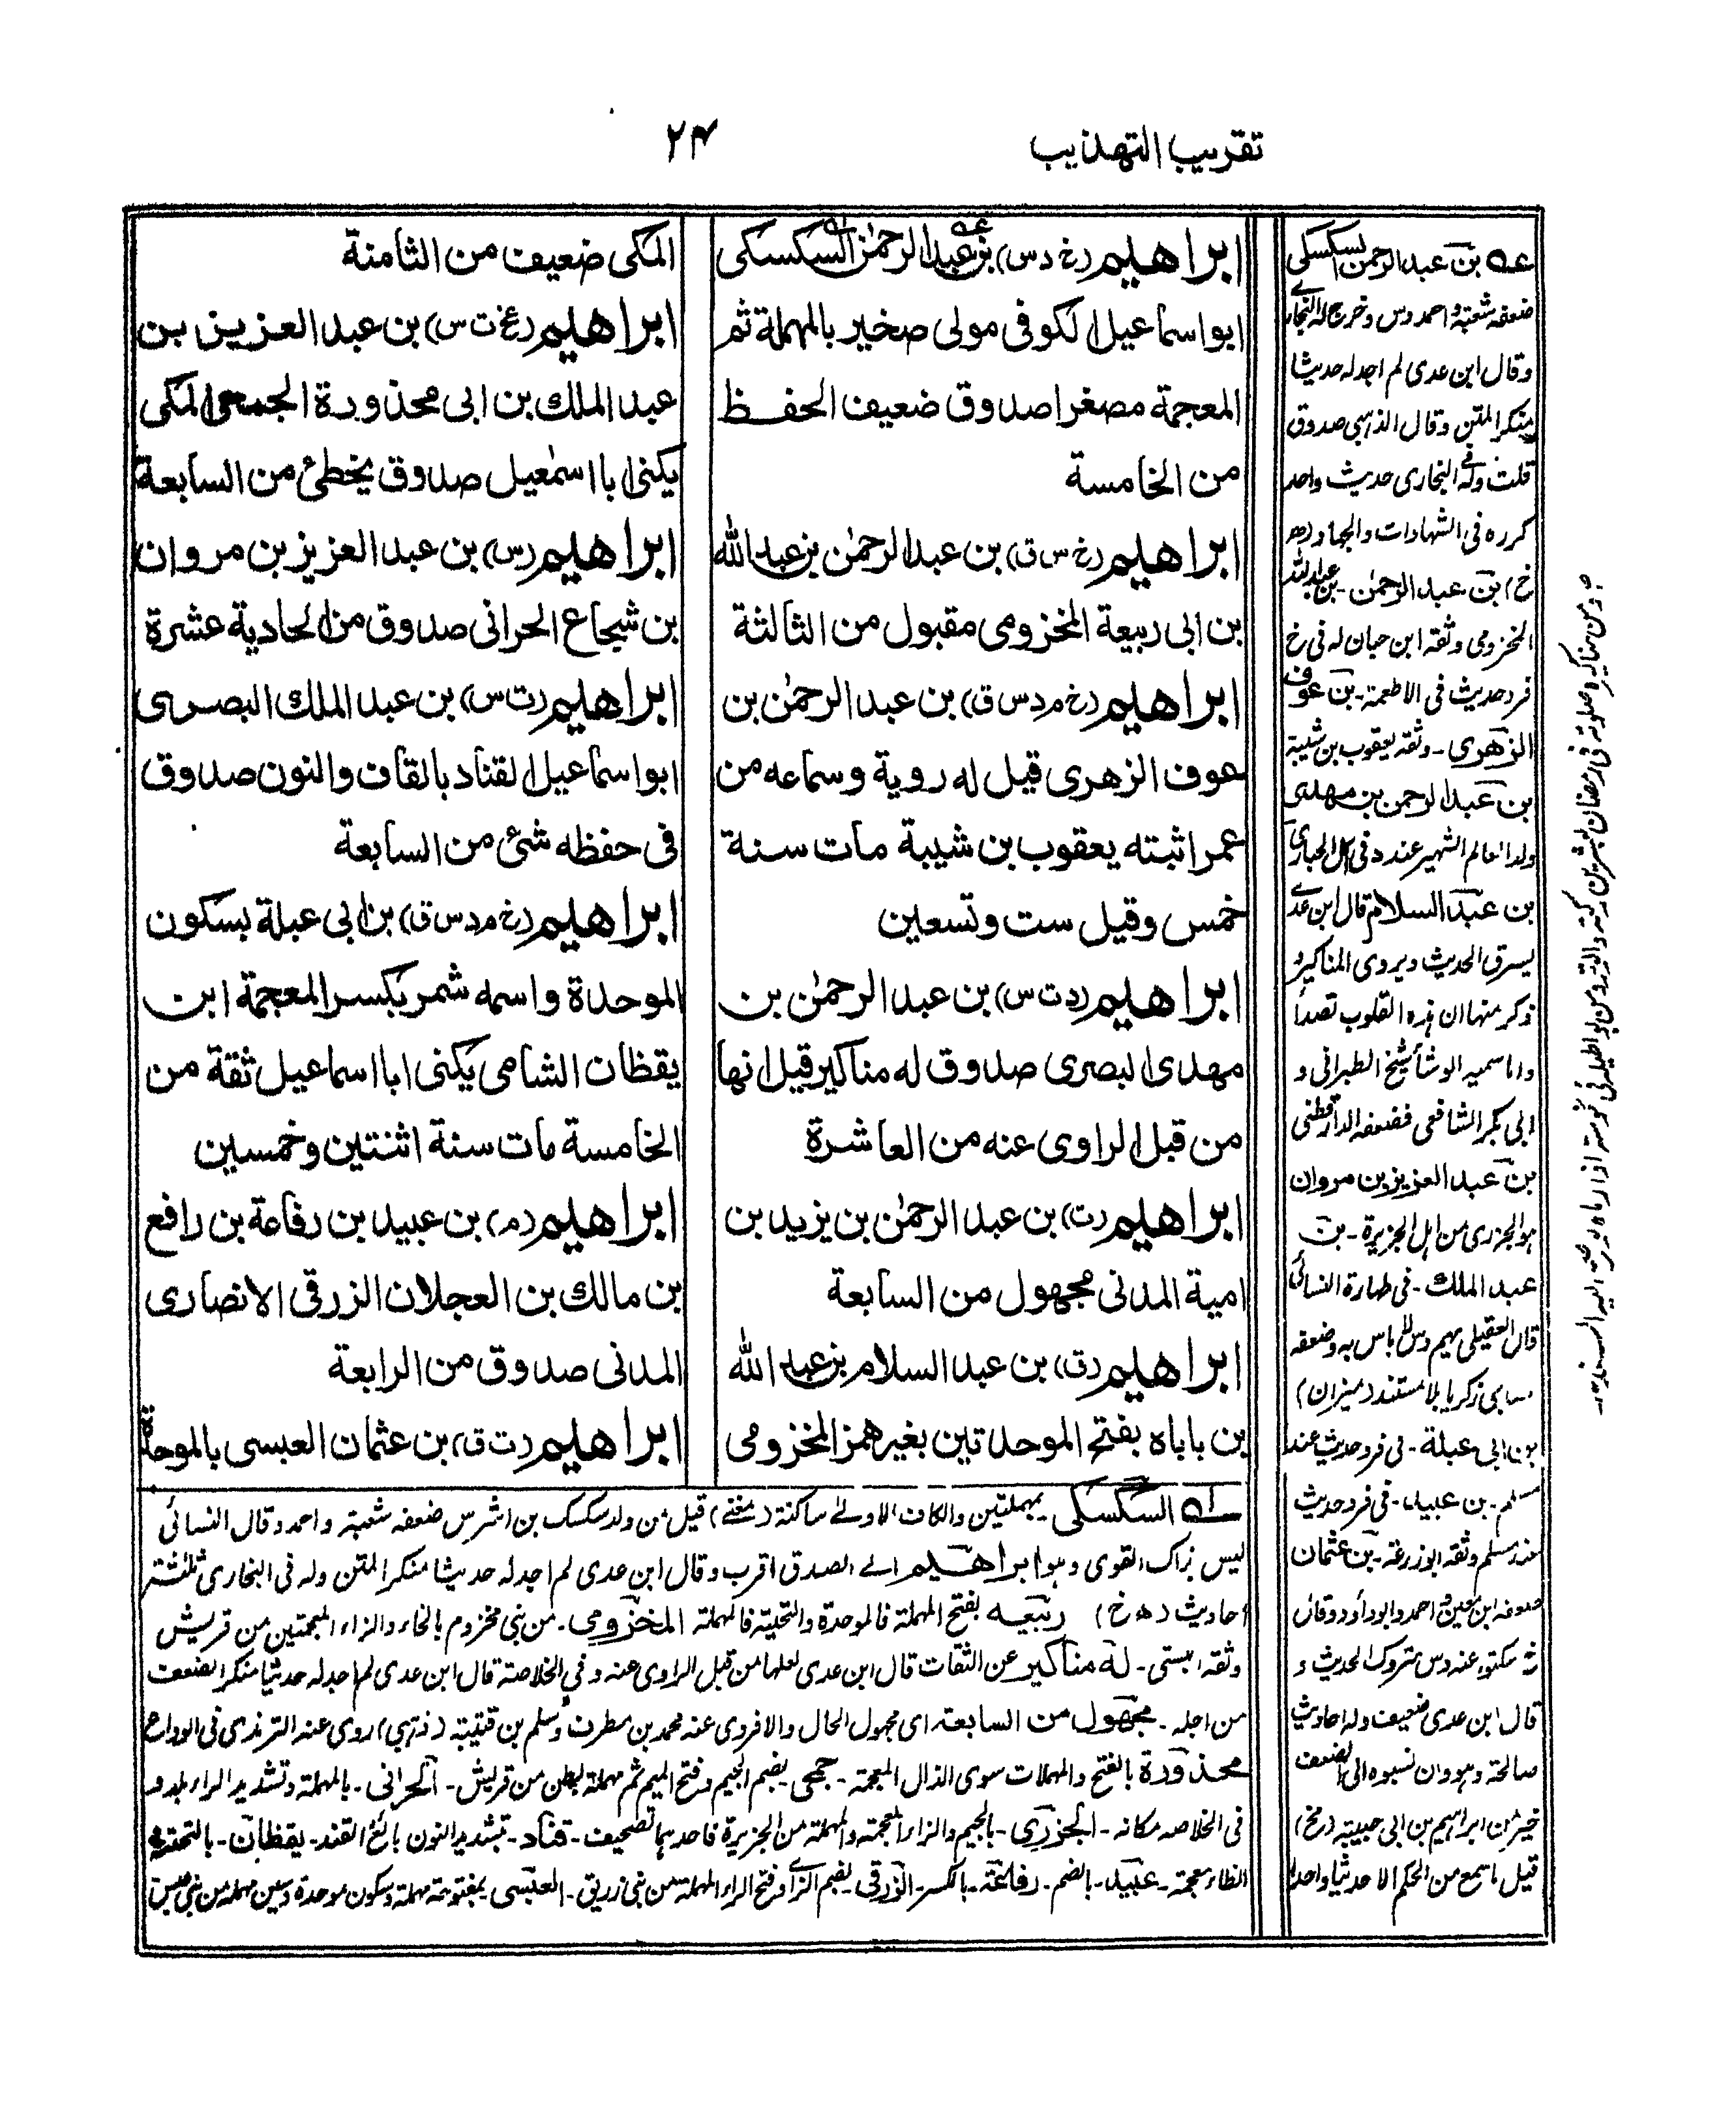 تقريب التهذيب
٢٤
ابراهيم (خ د س) بن عبد الرحمٰن السكسكى
ابو اسماعيل الكوفى مولى صخير بالمهملة ثم
المعجمة مصغرا صدوق ضعيف الحفظ
من الخامسة
ابراهيم (خ س ق) بن عبد الرحمٰن بن عبد الله
بن ابى ربيعة المخزومى مقبول من الثالثة
ابراهيم (خ م د س ق) بن عبد الرحمٰن بن
عوف الزهرى قيل له روية وسماعه من
عمر اثبته يعقوب بن شيبة مات سنة
خمس وقيل ست وتسعين
ابراهيم (د ت س) بن عبد الرحمٰن بن
مهدى البصرى صدوق له مناكير قيل انها
من قبل الراوى عنه من العاشرة
ابراهيم (ت) بن عبد الرحمٰن بن يزيد بن
امية المدنى مجهول من السابعة
ابراهيم (ق) بن عبد السلام بن عبد الله
بن باباه بفتح الموحدتين بغير همز المخزومى
المكى ضعيف من الثامنة
ابراهيم (عخ ت س) بن عبد العزيز بن
عبد الملك بن ابى محذورة الجمعى المكى
يكنى ابا اسمٰعيل صدوق يخطئ من السابعة
ابراهيم (س) بن عبد العزيز بن مروان
بن شجاع الحرانى صدوق من الحادية عشرة
ابراهيم (ت س) بن عبد الملك البصرى
ابو اسماعيل القناد بالقاف والنون صدوق
فى حفظه شئ من السابعة
ابراهيم (خ م د س ق) بن ابى عبلة بسكون
الموحدة واسمه شمر بكسر المعجمة ابن
يقظان الشامى يكنى ابا اسماعيل ثقة من
الخامسة مات سنة اثنتين وخمسين
ابراهيم (م) بن عبيد بن رفاعة بن رافع
بن مالك بن العجلان الزرقى الانصارى
المدنى صدوق من الرابعة
ابراهيم (ت ق) بن عثمان العبسى بالموحدة
عه بن عبد الرحمن السكسكى
ضعفه شعبة و احمد وس وخرج له البخارى
وقال ابن عدى لم اجد له حديثا
منكر المتن وقال الذهبى صدوق
قلت وله فى البخارى حديث واحد
كرره فى الشهادات والجهاد (ھ
خ) بن عبد الرحمٰن - بن عبد الله
المخزومى وثقه ابن حبان له فى خ
فرد حديث فى الاطعمة - بن عوف
الزهرى - وثقه يعقوب بن شيبة
بن عبد الرحمن بن مهدى
ولد العالم الشهير عند د فى
بن عبد السلام قال ابن عدى
يسرق الحديث ويروى المناكير و
ذكر منها ان هذه القلوب تصدأ
واما سميه الوشا شيخ الطبرانى و
ابى بكر الشافعى فضعفه الدارقطنى
بن عبد العزيز بن مروان
هو الجزرى من اهل الجزيرة - بن
عبد الملك - فى طهارة النسائى
قال العقيلى يهم وس لا باس به وضعفه
زكريا بلا مستند (ميزان)
بن ابى عبلة - فى فرد حديث عند
مسلم - بن عبيد - فى فرد حديث
عند مسلم وثقه ابو زرعة - بن عثمان
ضعفه ابن معين و احمد وابو داود وقال
سكتوا عنه وس متروك الحديث و
قال ابن عدى ضعيف وله احاديث
صالحة وهو وان نسبوه الى الضعف
خير من ابراهيم بن ابى حبيبة (مخ)
قيل ما سمع من الحكم الا حديثا واحدا
له السكسكى - بمهملتين والكاف الاولى ساكنة (مغنى) قيل من ولد سكسك بن اشرس ضعفه شعبة و احمد وقال النسائى
ليس بذاك القوى وهو ابراهيم الى الصدق اقرب وقال ابن عدى لم اجد له حديثا منكر المتن وله فى البخارى ثلثة
احاديث (ھ خ) ربيعه بفتح المهملة فالموحدة والتحتية فالمهملة المخزومى - من بنى مخزوم بالخاء والزاء المعجمتين من قريش
وثقه البستى - له مناكير عن الثقات قال ابن عدى لعلها من قبل الراوى عنه وفى الخلاصة قال ابن عدى لم اجد له حديثا منكرا لضعف
من اجله - مجهول من السابعة اى مجهول الحال والا فروى عنه محمد بن مطرف وسلم بن قتيبة (ذهبى) روى عنه الترمذى فى الوداع
محذورة بالفتح والمهملات سوى الذال المعجمة - جمحى - بضم الجيم وفتح الميم ثم مهملة بطن من قريش - الحرانى - بالمهملة وتشديد الراء
فى الخلاصه مكانه - الجزرى - بالجيم والزاء المعجمة والمهملة من الجزيرة فاحديهما تصحيف - قناد - بتشديد النون بائع القند - يقظان - بالتحتية و
الظاء معجمة - عبيد - بالضم - رفاعة - بالكسر - الزرقى - بضم الزاى وفتح الراء المهملة من بنى زريق - العبسى بمفتوحة مهملة وسكون موحدة وسين مهملة من بنى عبس